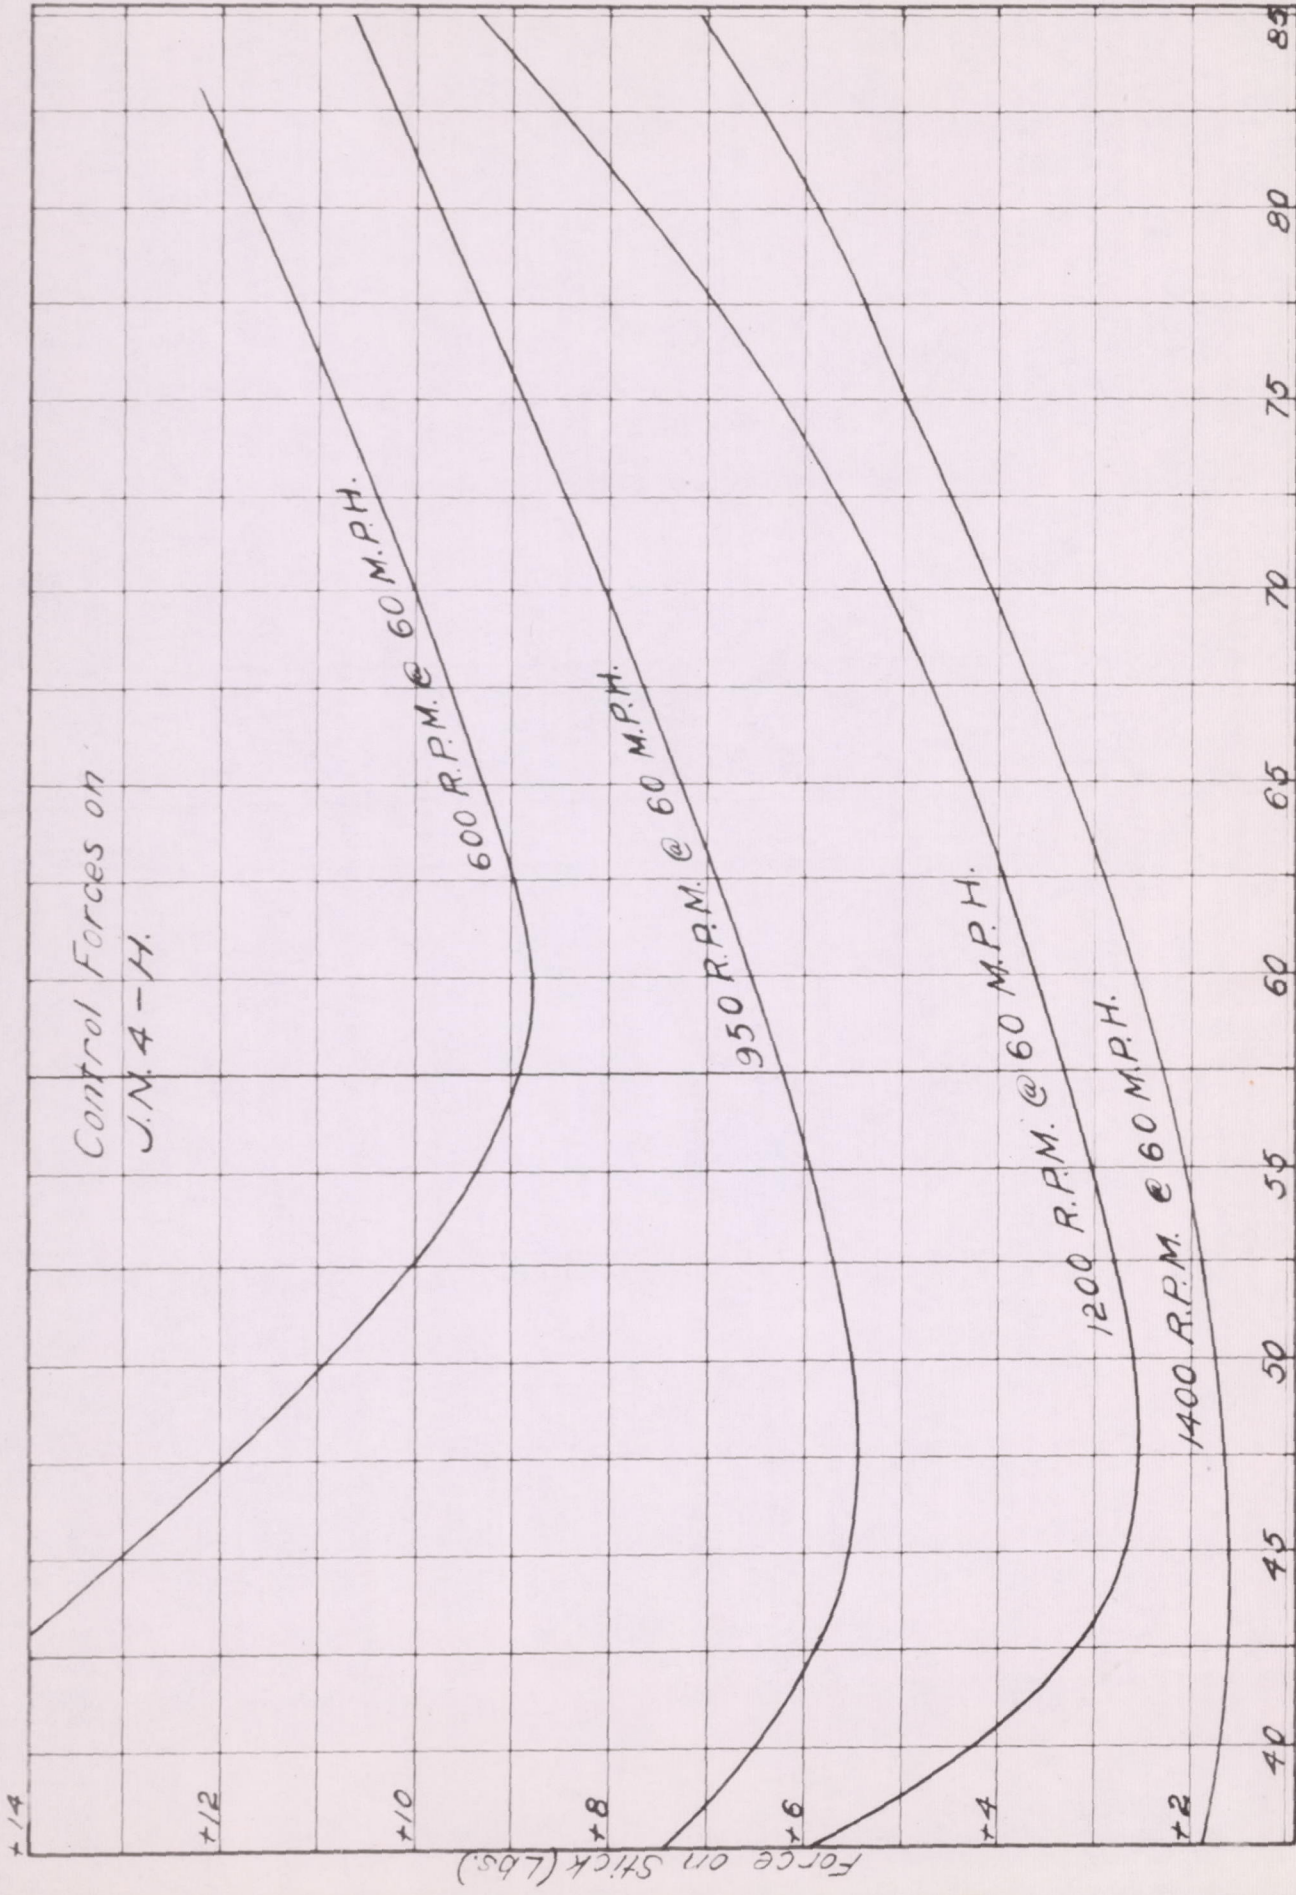 Control Forces on
J.N.4-H.
600 R.P.M. @ 60 M.P.H.
950 R.P.M. @ 60 M.P.H.
1200 R.P.M. @ 60 M.P.H.
1400 R.P.M. @ 60 M.P.H.
Force on Stick (Lbs.)
+14
+12
+10
+8
+6
+4
+2
40
45
50
55
60
65
70
75
80
85